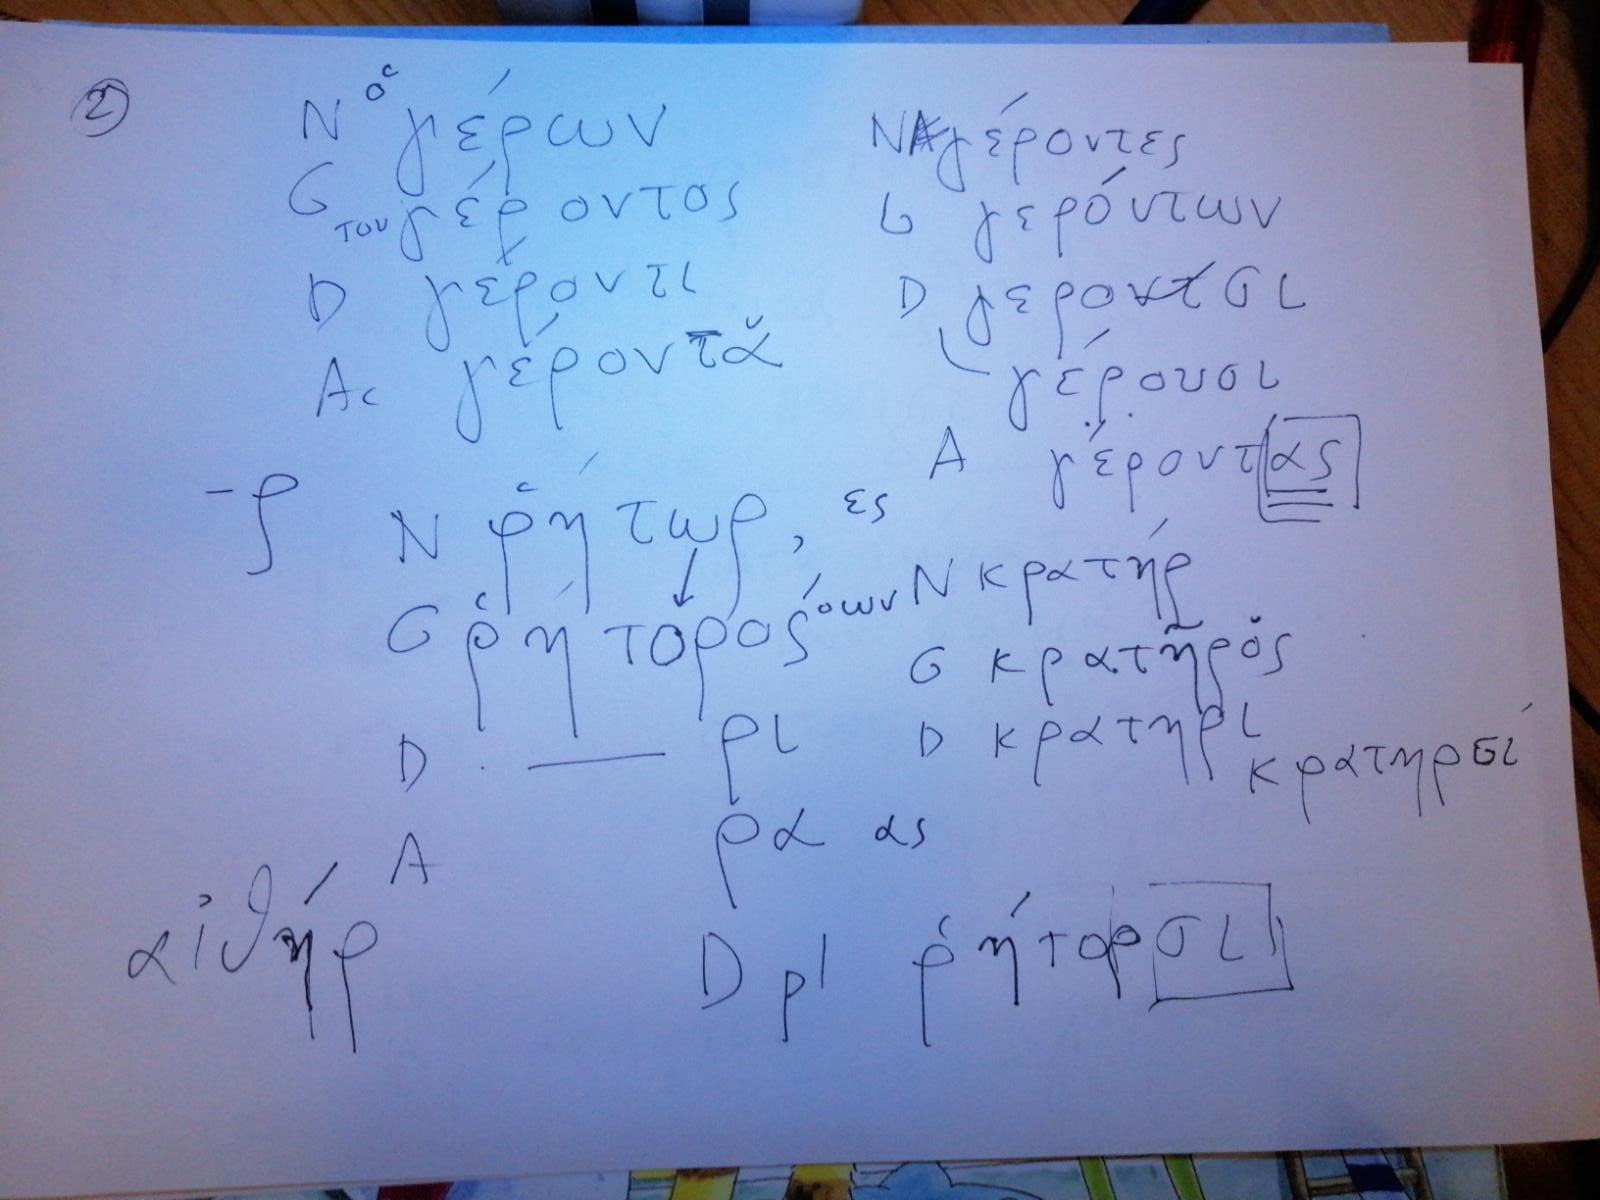 2
N ὁ γέρων
G του γέροντος
D γέροντι
Ac γέροντᾰ
N γέροντες
G γερόντων
D γεροντσι
γέρουσι
A γέροντας
-ρ
N ῥήτωρ, ες
G ῥήτορος, ων
D - ρι
A ρα ας
N κρατήρ
G κρατῆρος
D κρατηρι κρατηρσί
αἰθήρ
D pl ῥήτορσι